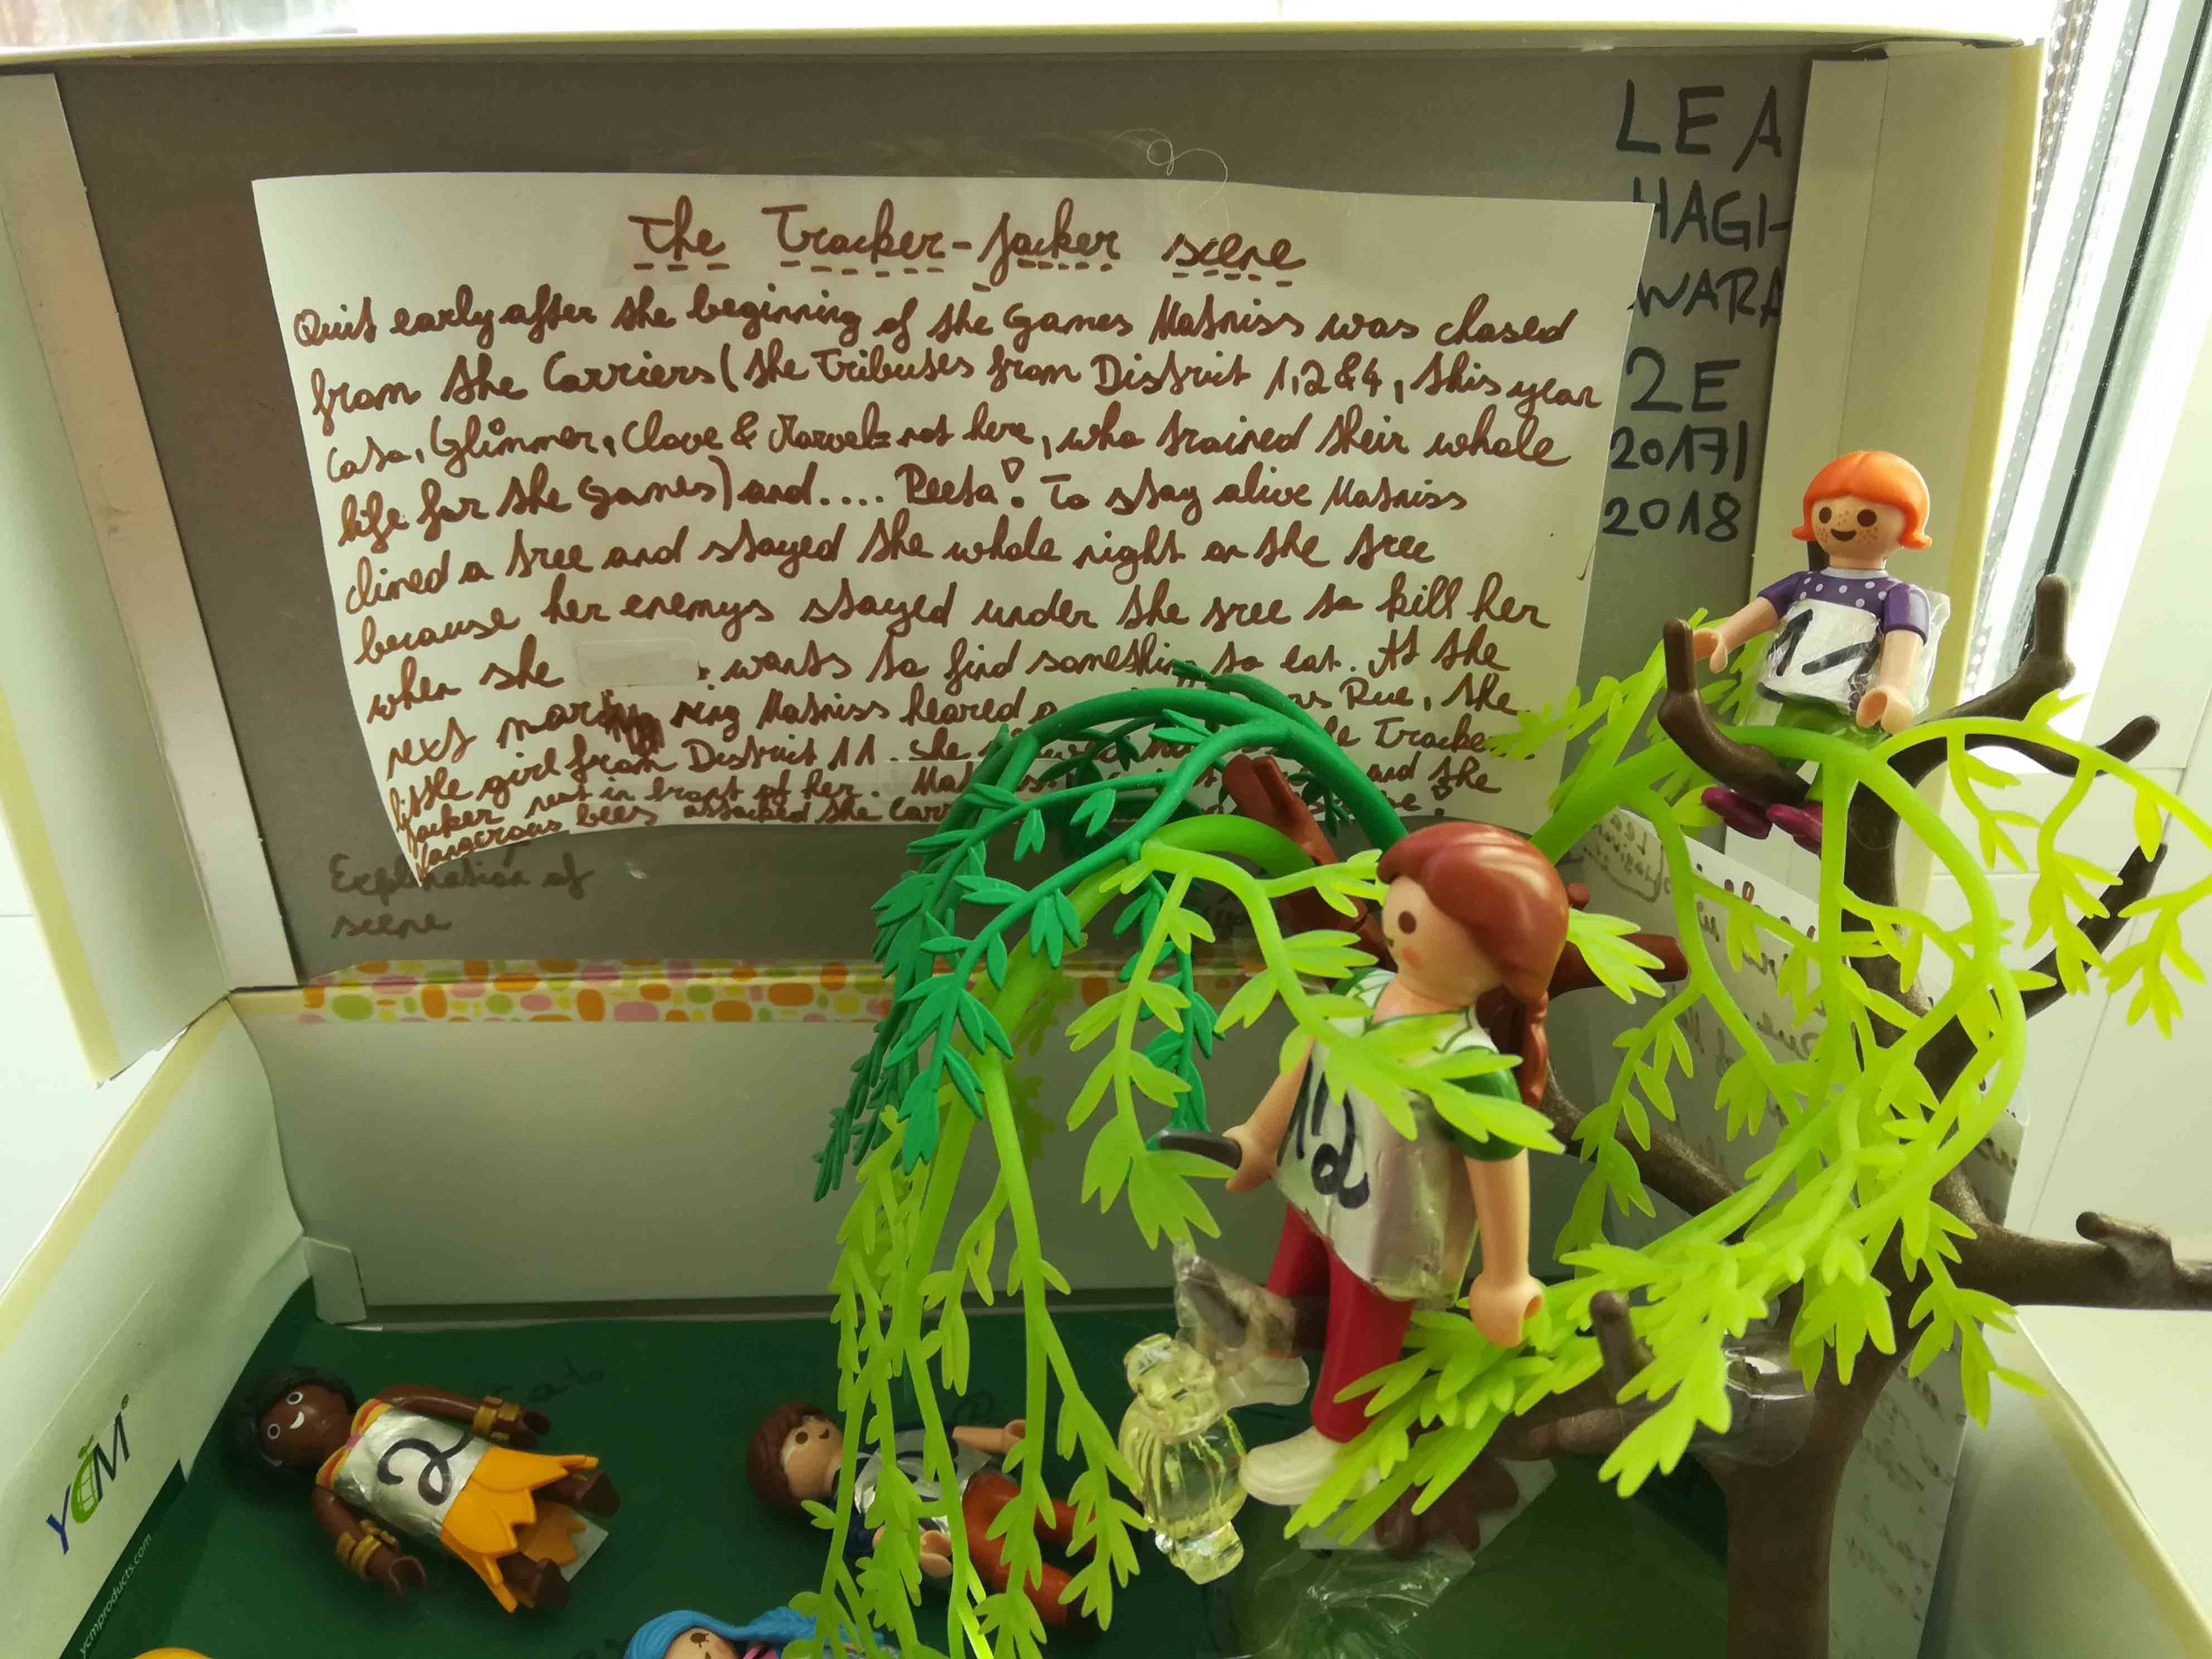 The Tracker-Jacker scene
Quit early after the beginning of the Games Katniss was chased
from the Carriers (the Tributes from District 1,2 & 4, this year
Cato, Glimmer, Clove & Marvel: not here, who trained their whole
life for the Games) and.... Peeta! To stay alive Katniss
climed a tree and stayed the whole night on the tree
because her enemys stayed under the tree to kill her
when she wants to find something to eat. At the
next morning Katniss heared Rue, the
little girl from District 11. She Tracker
Jacker nest in front of her. and the
dangerous bees attacked the
Explanation of
scene
LEA
HAGI-
WARA
2E
2017/
2018
11
12
2
Cato
YCM®
ycmproducts.com